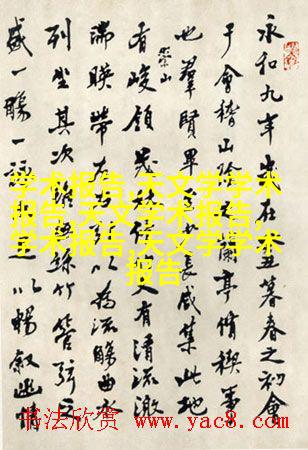 永和九年歲在癸丑暮春之初會
于會稽山陰蘭亭脩稧事
也羣賢畢至少長咸集此地
有崇山峻領茂林脩竹又有清流激
湍暎帶左右引以為流觴曲水
列坐其次雖無絲竹管弦之
盛一觴一詠亦足以暢叙幽情
学术报告,天文学学术
报告,天文学术报告,
学术报告,天文学学术
报告
书法欣赏 www.yac8.com